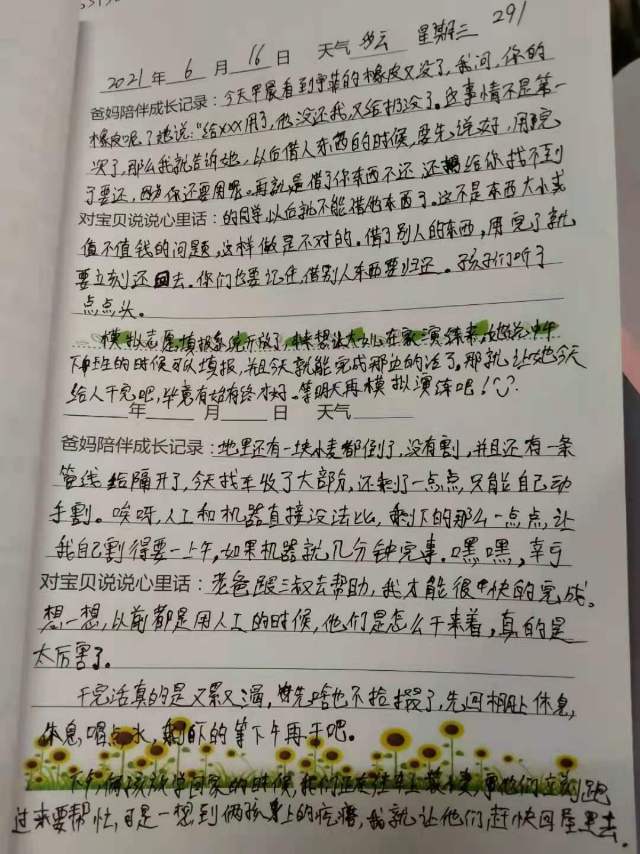 291
2021年 6 月 16 日 天气 多云 星期三
爸妈陪伴成长记录：今天早晨看到宇菲的橡皮又没了，我问，你的
橡皮呢？她说："给xxx用了，他没还我，又给扔没了。这事情不是第一
次了，那么我就告诉她，以后借人东西的时候，要先说好，用完
了要还，因为你还要用呢。再就是借了你东西不还，还给你找不到
对宝贝说说心里话：的同学，以后就不能借他东西了。这不是东西大小或
值不值钱的问题，这样做是不对的。借了别人的东西，用完了就
要立刻还回去。你们也要记住，借别人东西要归还。孩子们听了
点点头。
模拟志愿填报系统开放了，本来想让大儿在家演练来，她说中午
下班的时候可以填报，并且今天就能完成那边的活了。那就让她今天
给人干完吧，毕竟有始有终才好。等明天再模拟演练吧！
年 月 日 天气
爸妈陪伴成长记录：地里还有一块小麦都倒了，没有割，并且还有一条
管线给隔开了，今天找车收了大部分，还剩了一点点，只能自己动
手割。唉呀，人工和机器直接没法比，剩下的那么一点点，让
我自己割得要一上午，如果机器就几分钟完事。嘿嘿，幸亏
对宝贝说说心里话：老爸跟三叔去帮助，我才能很快的完成。
想一想，以前都是用人工的时候，他们是怎么干来着，真的是
太厉害了。
干完活真的是又累又渴，先啥也不捡掇了，先回棚上休息，
休息喝点水，剩下的等下午再干吧。
下午俩孩放学回家的时候，我们正在往车上装小麦，他们立刻跑
过来要帮忙，可是一想到俩孩身上的疙瘩，我就让他们赶快回屋里去。